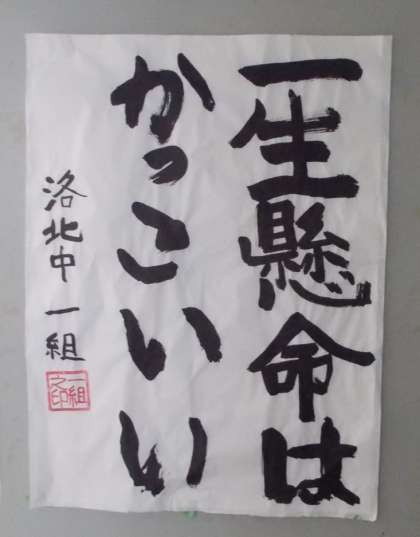 一生懸命は
かっこいい
洛北中 一組
一組
之印